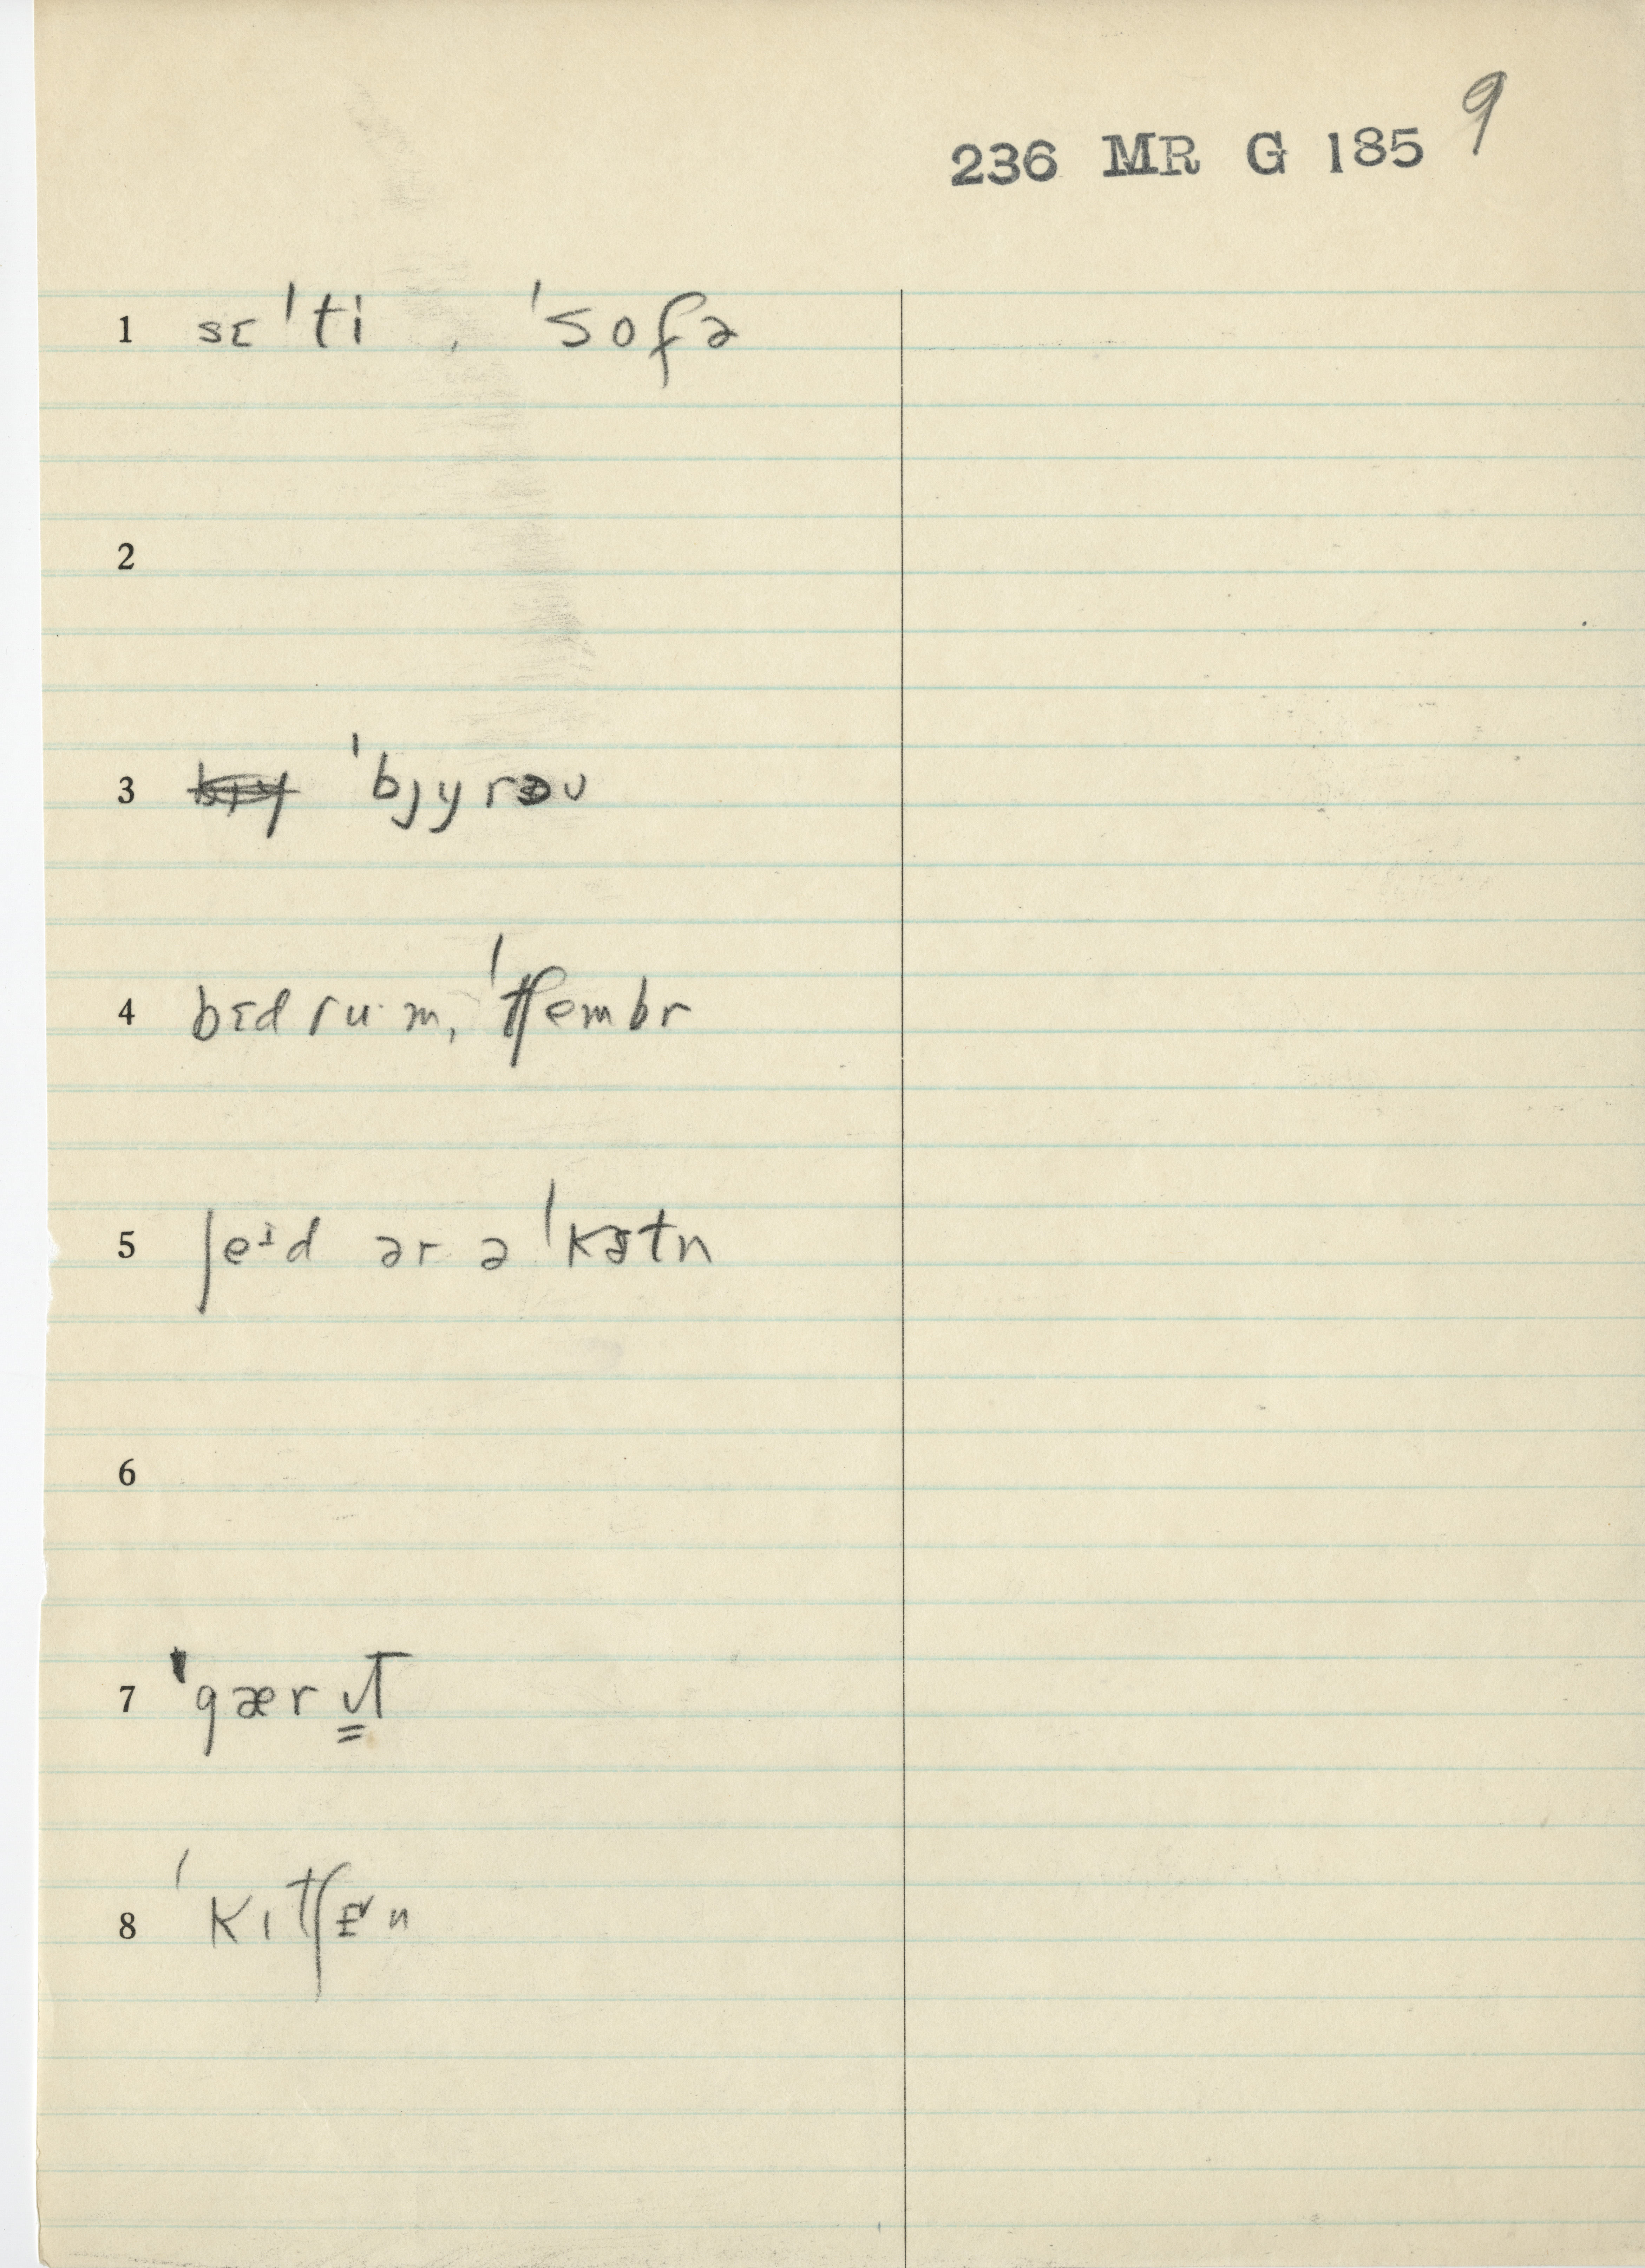 9
236 MR G 185
1 sɛˈti , ˈsofə
2
3 ˈbjyrəu
4 bɛd ru·m, ˈtʃembr
5 ʃeɪd ər ə ˈkɜtn
6
7 ˈgærʊT
8 ˈkɪtʃɛn